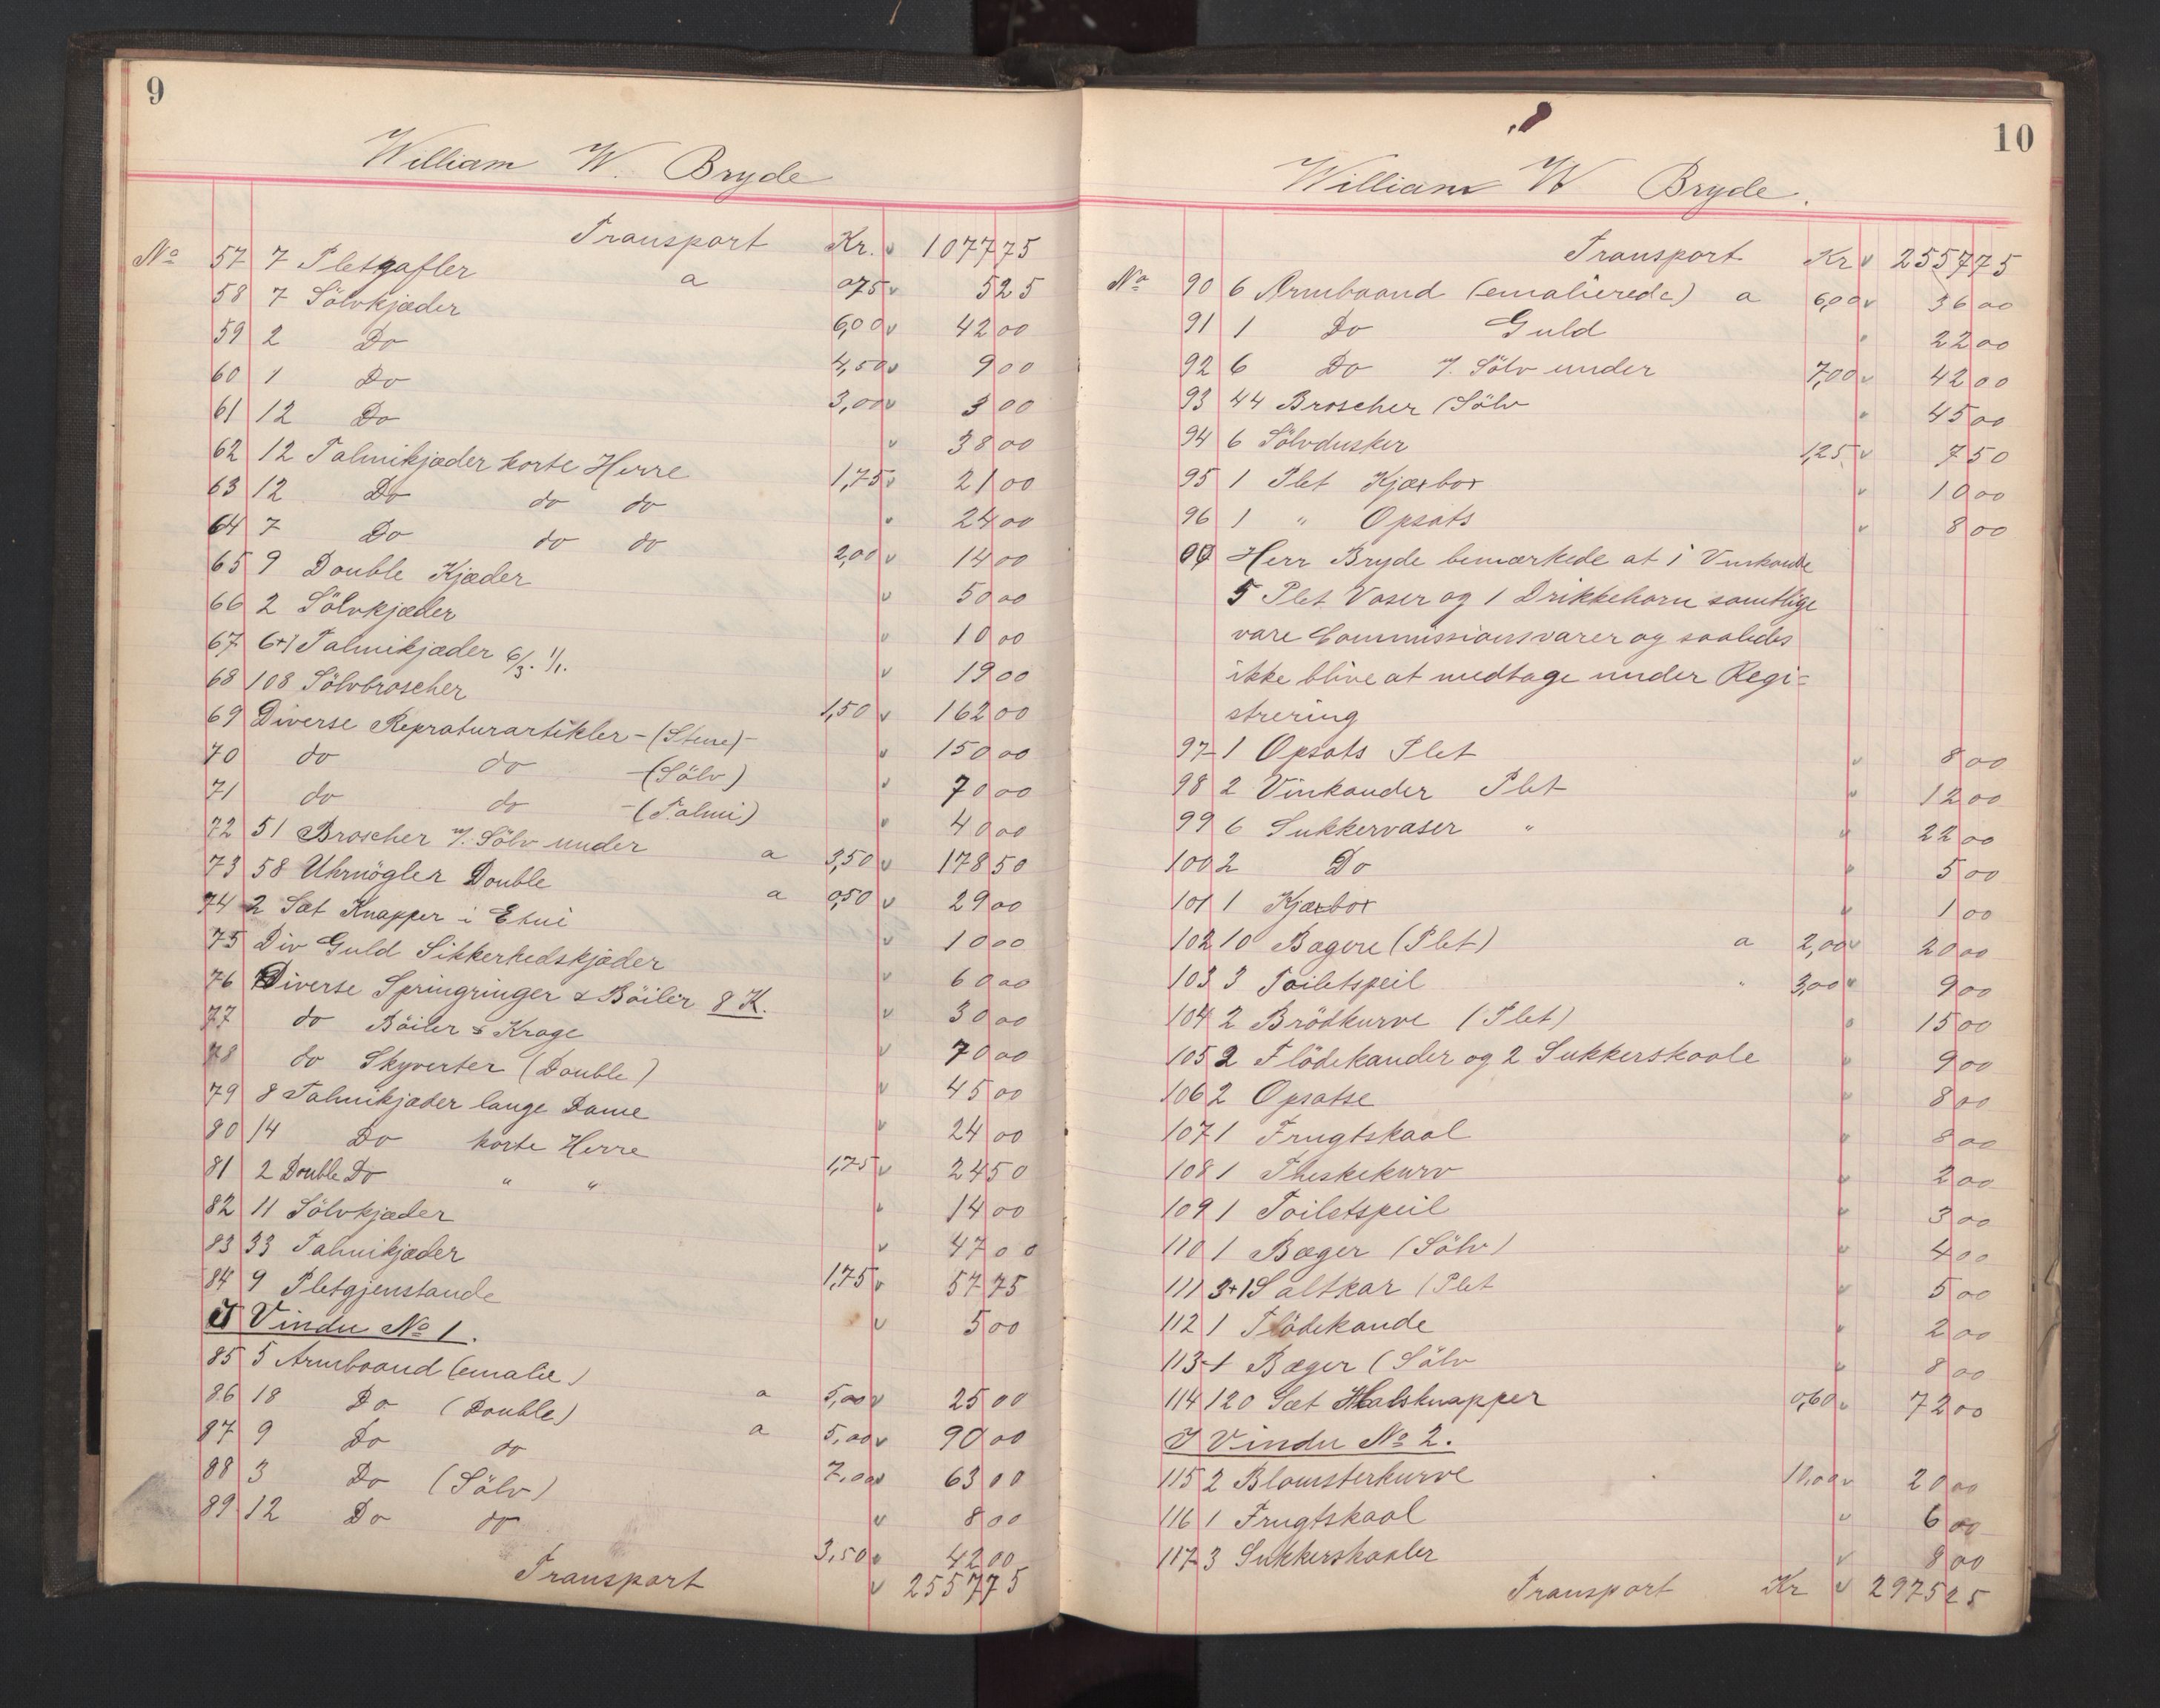 9
William W. Bryde
Transport Kr. " 1077 75
No 57 7 Pletgafler a 075 " 5 25
58 7 Sölvkjæder 6,00 " 42 00
59 2 Do 4,50 " 9 00
60 1 Do 3,00 " 3 00
61 12 Do " 38 00
62 12 Talmikjæder korte Herre 1,75 " 21 00
63 12 Do do do " 24 00
64 7 Do do do 2,00 " 14 00
65 9 Double Kjæder " 50 00
66 2 Sölvkjæder " 10 00
67 6+1 Talmikjæder 6/3. 1/1. " 19 00
68 108 Sölvbroscher 1,50 " 162 00
69 Diverse Repraturartikler - (Stene) - " 150 00
70 do do - (Sölv) " 70 00
71 do do - (Talmi) " 40 00
72 51 Broscher m/. Sölv under a 3,50 " 178 50
73 58 Uhrnögler Double a 0,50 " 29 00
74 2 Sæt Knapper i Etui " 10 00
75 Div Guld Sikkerhedskjæder " 60 00
76 Diverse Springringer & Böiler 8 K. " 30 00
77 do Böiler & Krage " 70 00
78 do Skyverter (Double) " 45 00
79 8 Talmikjæder lange Dame " 24 00
80 14 Do korte Herre 1,75 " 24 50
81 2 Double Do " " " 14 00
82 11 Sölvkjæder " 47 00
83 33 Talmikjæder 1,75 " 57 75
84 9 Pletgjenstande " 5 00
I Vindu No 1.
85 5 Armbaand (emalie) a 5,00 " 25 00
86 18 Do (Double) a 5,00 " 90 00
87 9 Do do 7,00 " 63 00
88 3 Do (Sölv) " 8 00
89 12 Do do 3,50 " 42 00
Transport " 2557 75
10
William W Bryde.
Transport Kr " 2557 75
No 90 6 Armbaand (emalierede) a 6,00 " 36 00
91 1 Do Guld " 22 00
92 6 Do m/. Sölv under 7,00 " 42 00
93 44 Broscher (Sölv " 45 00
94 6 Sölvdusker 1,25 " 7 50
95 1 Plet Kjæxbox " 10 00
96 1 " Opsats " 8 00
Herr Bryde bemærkede at i Vinkande
5 Plet Vaser og 1 Drikkehorn samtlige
vare Commissionsvarer og saaledes
ikke blive at medtage under Regi=
strering
97 1 Opsats Plet " 8 00
98 2 Vinkander Plet " 12 00
99 6 Sukkervaser " " 22 00
100 2 Do " 5 00
101 1 Kjæxbox " 1 00
102 10 Bægere (Plet) a 2,00 " 20 00
103 3 Toiletspeil " 3,00 " 9 00
104 2 Brödkurve (Plet) " 15 00
105 2 Flödekander og 2 Sukkerskaale " 9 00
106 2 Opsatse " 8 00
107 1 Frugtskaal " 8 00
108 1 Theskekurv " 2 00
109 1 Toiletspeil " 3 00
110 1 Bæger (Sölv) " 4 00
111 3+1 Saltkar (Plet " 5 00
112 1 Flödekande " 2 00
113 1 Bæger (Sölv " 8 00
114 120 Sæt Halsknapper 0,60 " 72 00
I Vindu No 2.
115 2 Blomsterkurve 10,00 " 20 00
116 1 Frugtskaal " 6 00
117 3 Sukkerskaaler " 8 00
Transport Kr " 2975 25